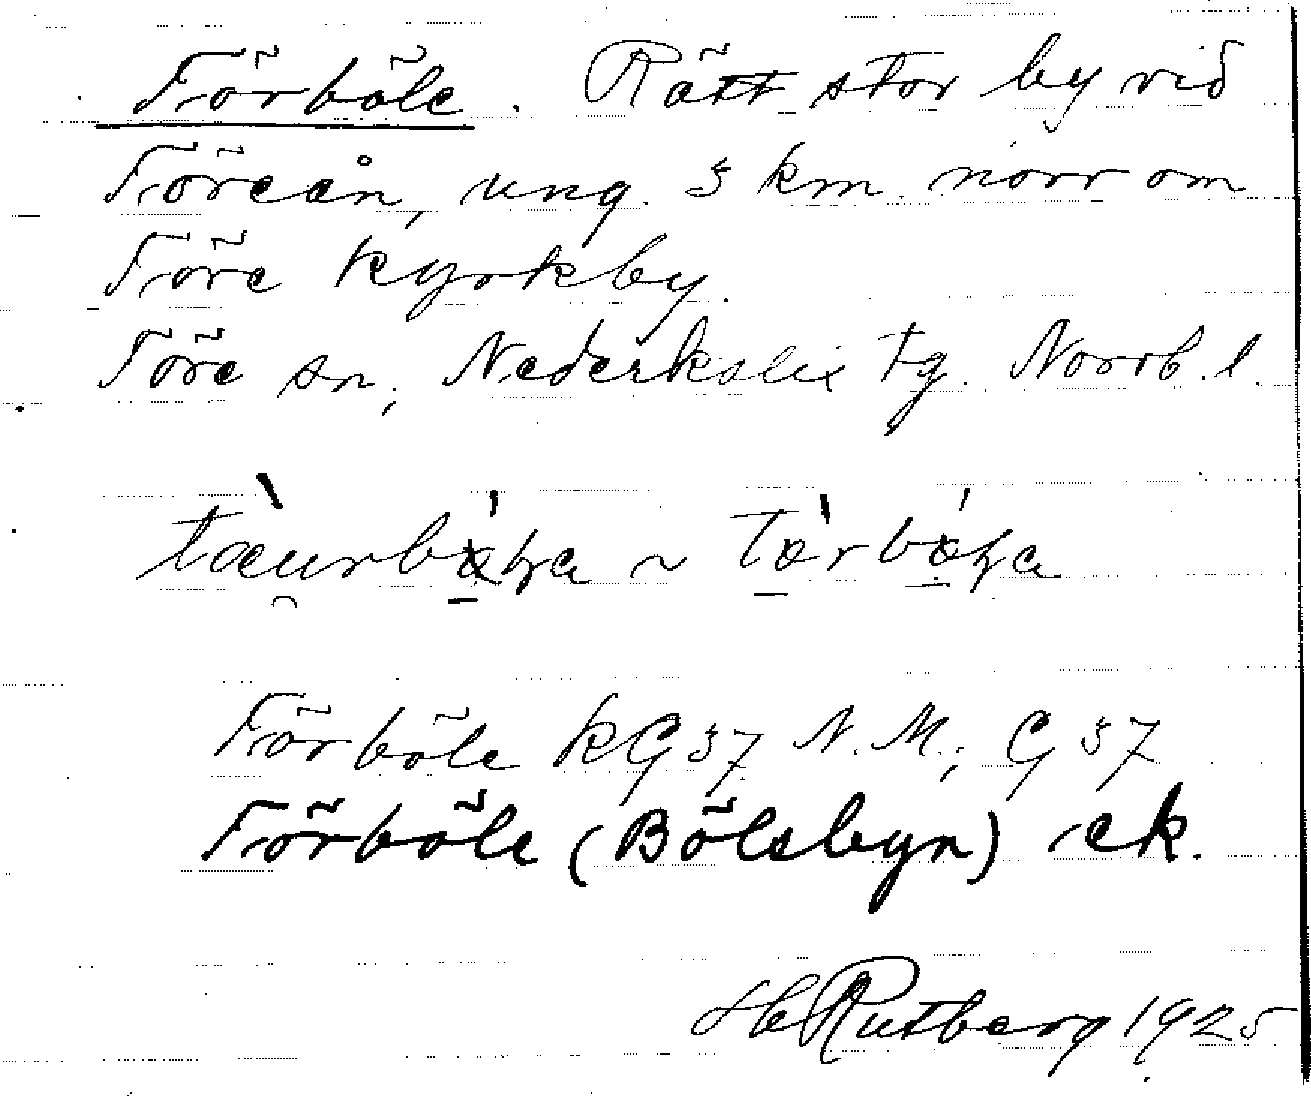 Törböle. Rätt stor by vid
Töreån, ung. 3 km. norr om
Töre kyrkby.
Töre sn, Nederkalix tg. Norrb. l.
Törböle KG 37 N. M.; G 37
Törböle (Bölsbyn) ek.
H Rutberg 1925